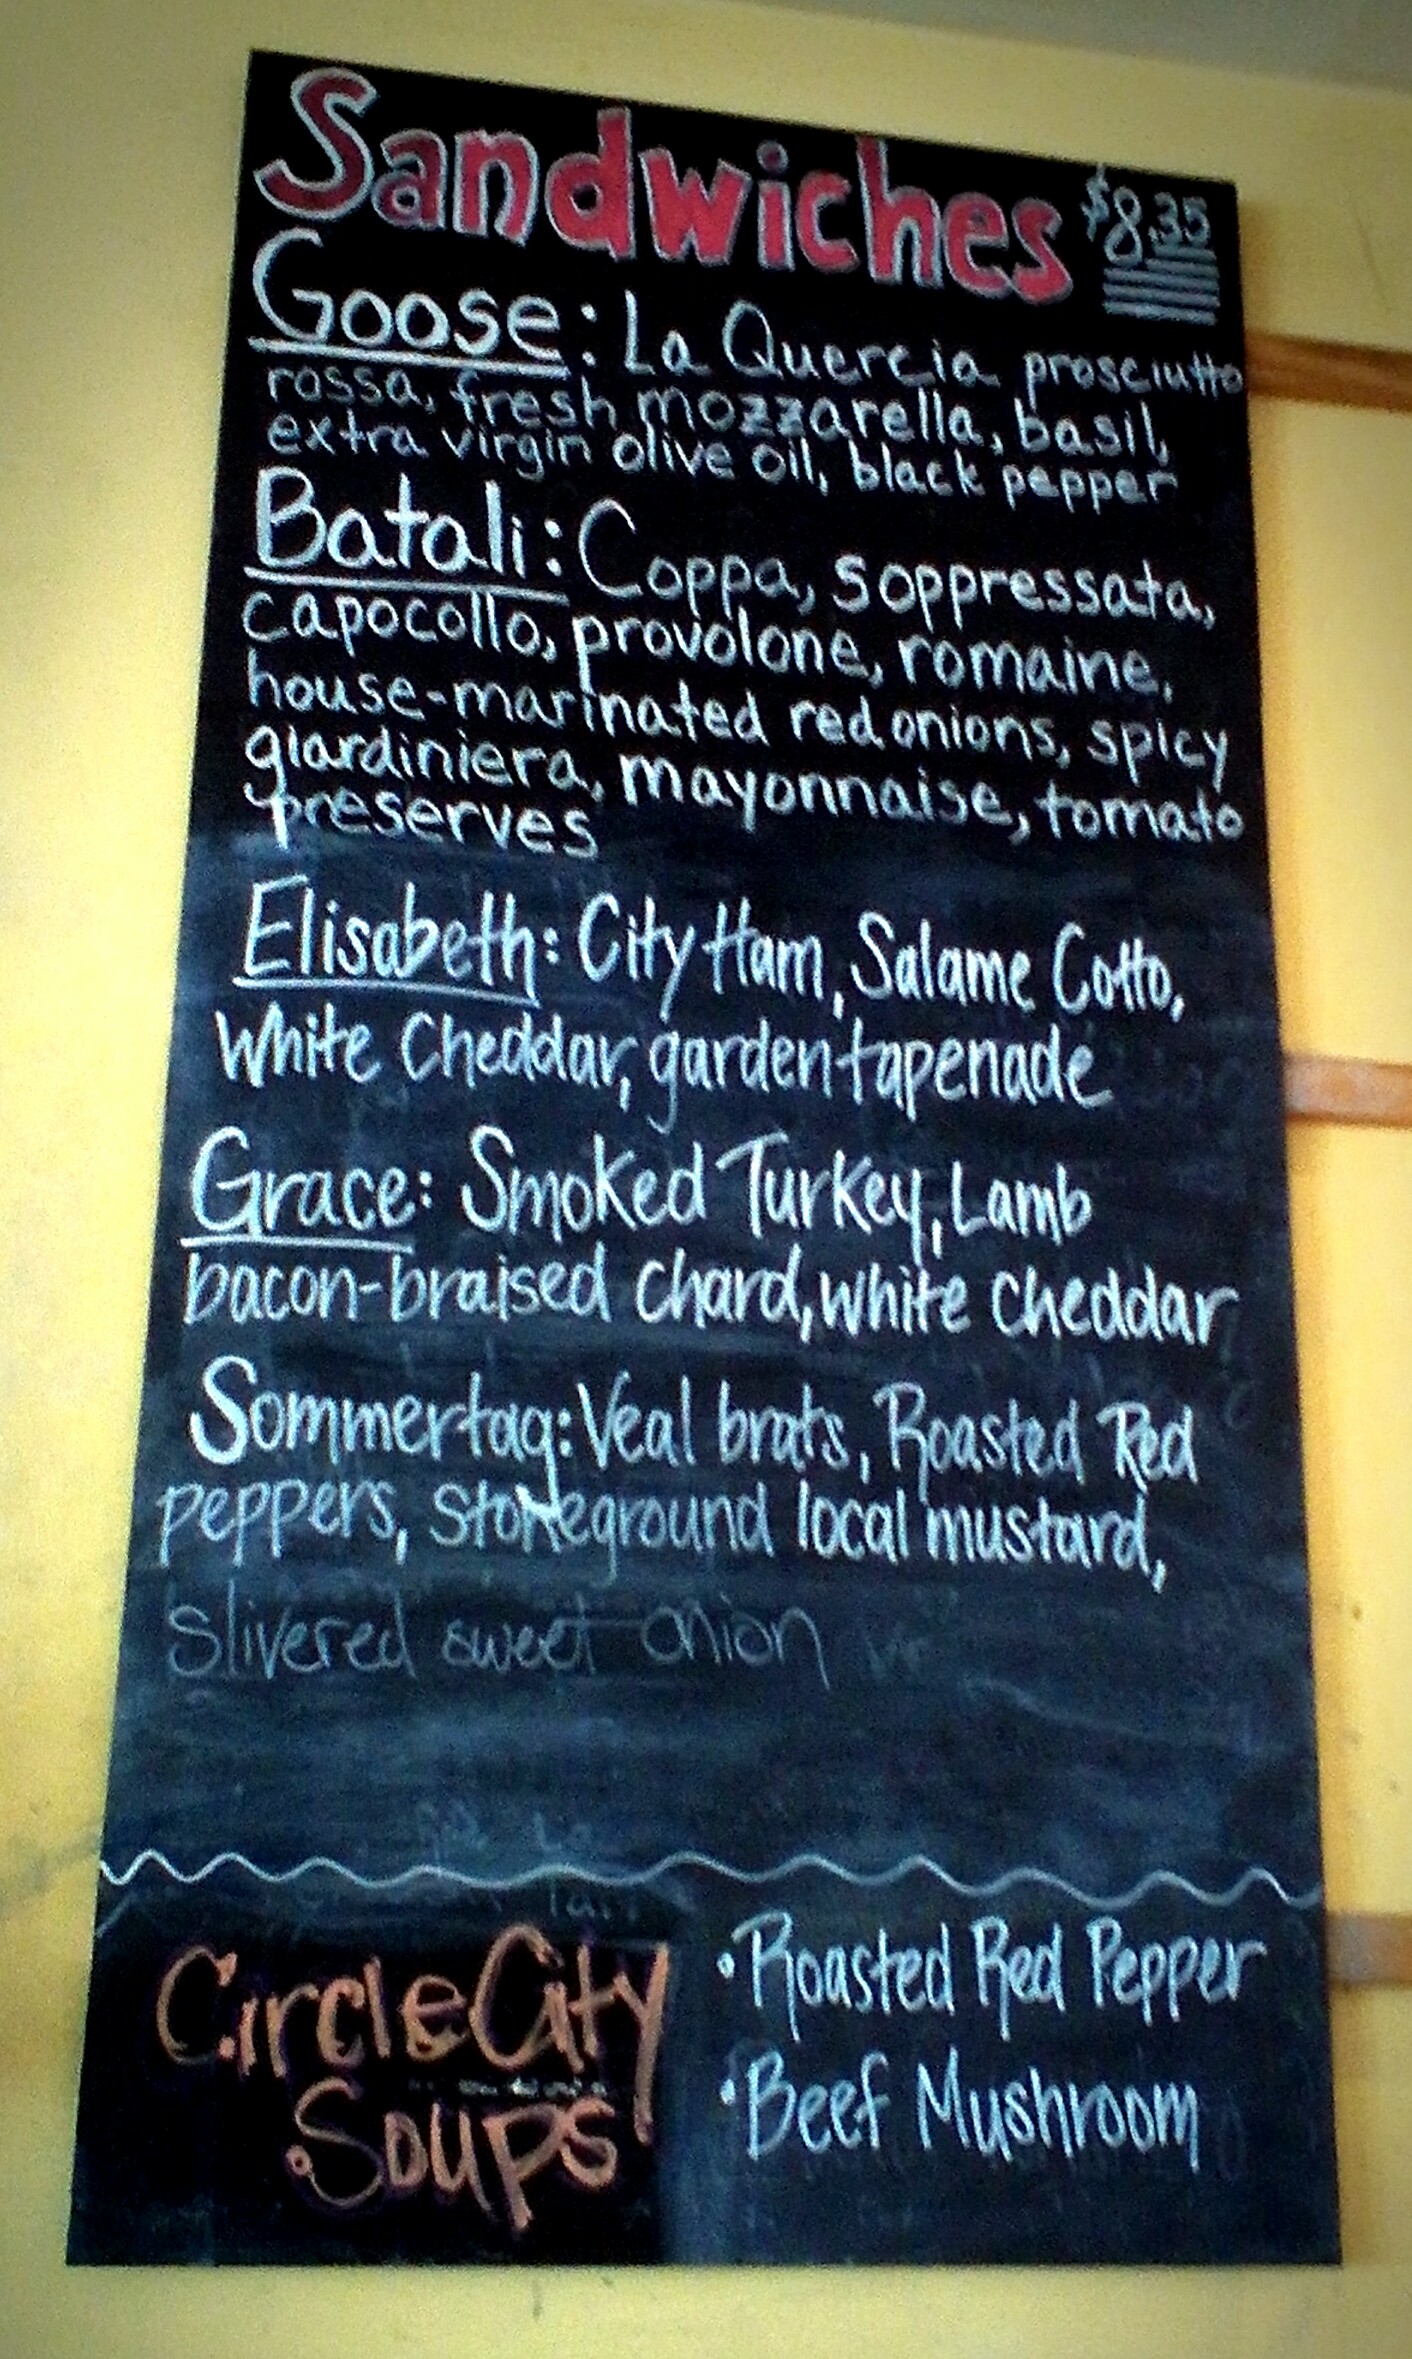 Sandwiches $8.35
Goose: La Quercia prosciutto
rossa, fresh mozzarella, basil,
extra virgin olive oil, black pepper
Batali: Coppa, soppressata,
capocollo, provolone, romaine,
house-marinated red onions, spicy
giardiniera, mayonnaise, tomato
preserves
Elisabeth: City Ham, Salame Cotto,
White Cheddar, garden tapenade
Grace: Smoked Turkey, Lamb
bacon-braised chard, white cheddar
Sommertag: Veal brats, Roasted Red
peppers, stoneground local mustard,
slivered sweet onion
Circle City
Soups
• Roasted Red Pepper
• Beef Mushroom